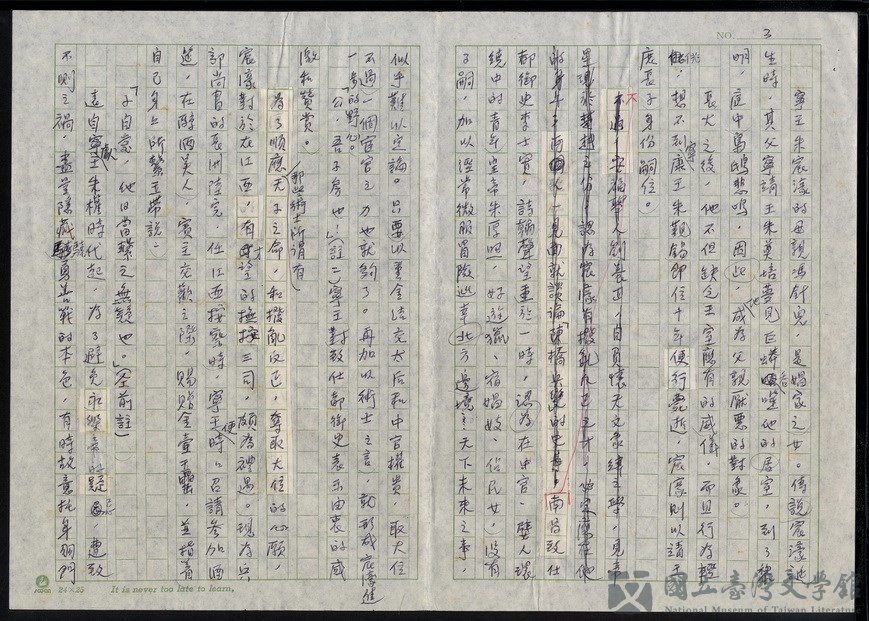 NO. 3
寧王朱宸濠的母親馮針兒,是娼家之女。傳說宸濠誕
生時,其父寧靖王朱奠培夢見巨蟒噬他的居室,到了黎
明,庭中鴟鴞悲鳴,因此,他成為父親厭惡的對象。
長大之後,他不但缺乏王室應有的威儀,而且行為輕
佻,想不到寧康王朱覲錫即位十年便行薨逝,宸濠則以諸王
庶長子身份嗣位。
南昌致仕
都御史李士實,詩翰聲望重於一時,認為在中官、嬖人環
繞中的青年皇帝朱厚照,好遊獵、宿娼妓、俗民女,沒有
子嗣,加以經常微服冒險巡幸北方邊境;天下未來之事,
似乎難以定論。只要以重金結交太后和中官權貴,取大位
不過一個宦官之力也就夠了。再加以術士之言,就形成宸濠進
一步的野心。
「公,吾子房也!」(註二)寧王對致仕都御史表示由衷的感
激和贊賞。
為了順應天子之命,和撥亂反正,奪取大位的心願,
宸濠對於在江西,有才望的撫按三司,頗為禮遇。現為兵
部尚書的長洲陸完,任江西按察時,寧王便時時召請參加酒
筵,在醇酒美人,賓主交歡之際,賜贈金壺玉罍,並指着
自己身上所繫玉帶說:
「子自意,他日當繫之無疑也。」(仝前註)
遠自寧獻王朱權時代起,為了避免永樂帝的疑忌,遭致
不測之禍,盡量隱藏驍勇善戰的本色,有時故意托身
24×25 It is never too late to learn.
國立臺灣文學館
National Museum of Taiwan Literature